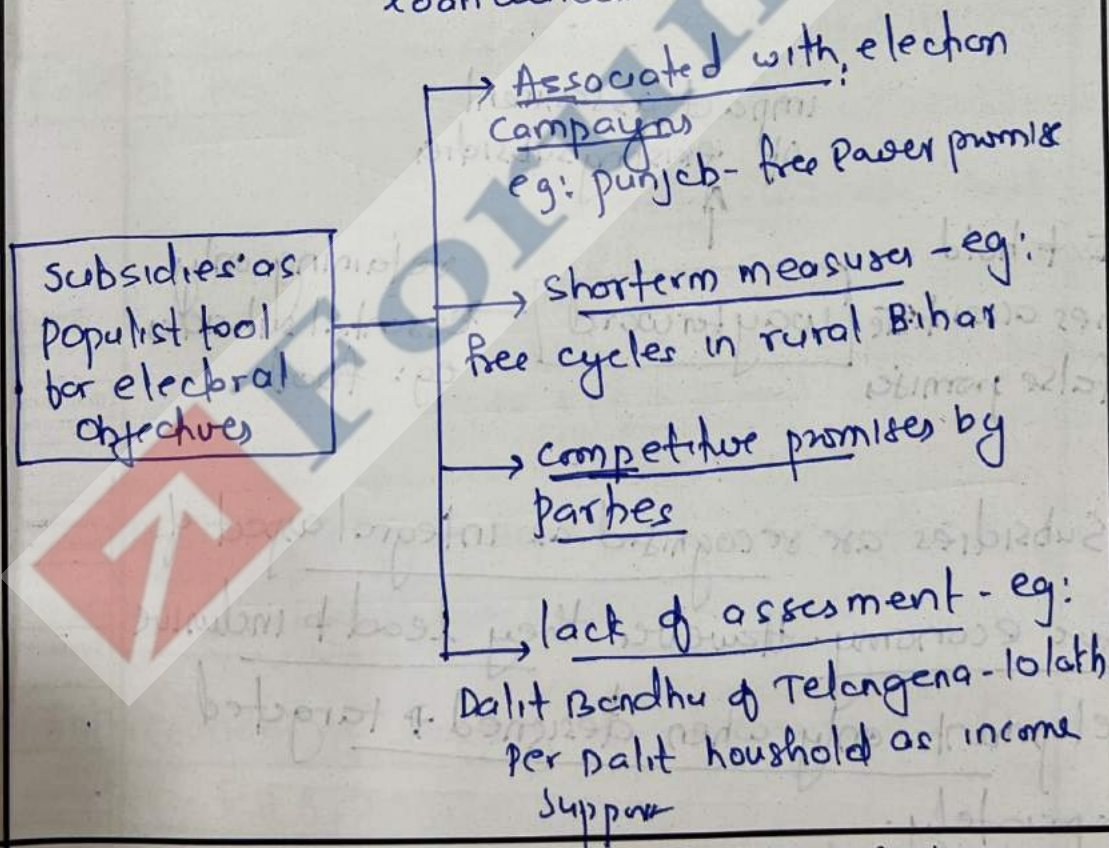 subsidies as
populist tool
for electoral
objectives
→ Associated with election
campaygns
eg: punjab - free Power promise
→ shorterm measures - eg:
free cycles in rural Bihar
→ competitive promises by
parties
→ lack of assesment - eg:
Dalit Bandhu of Telangena - 10 lakh
per Dalit houshold as income
support
Forum